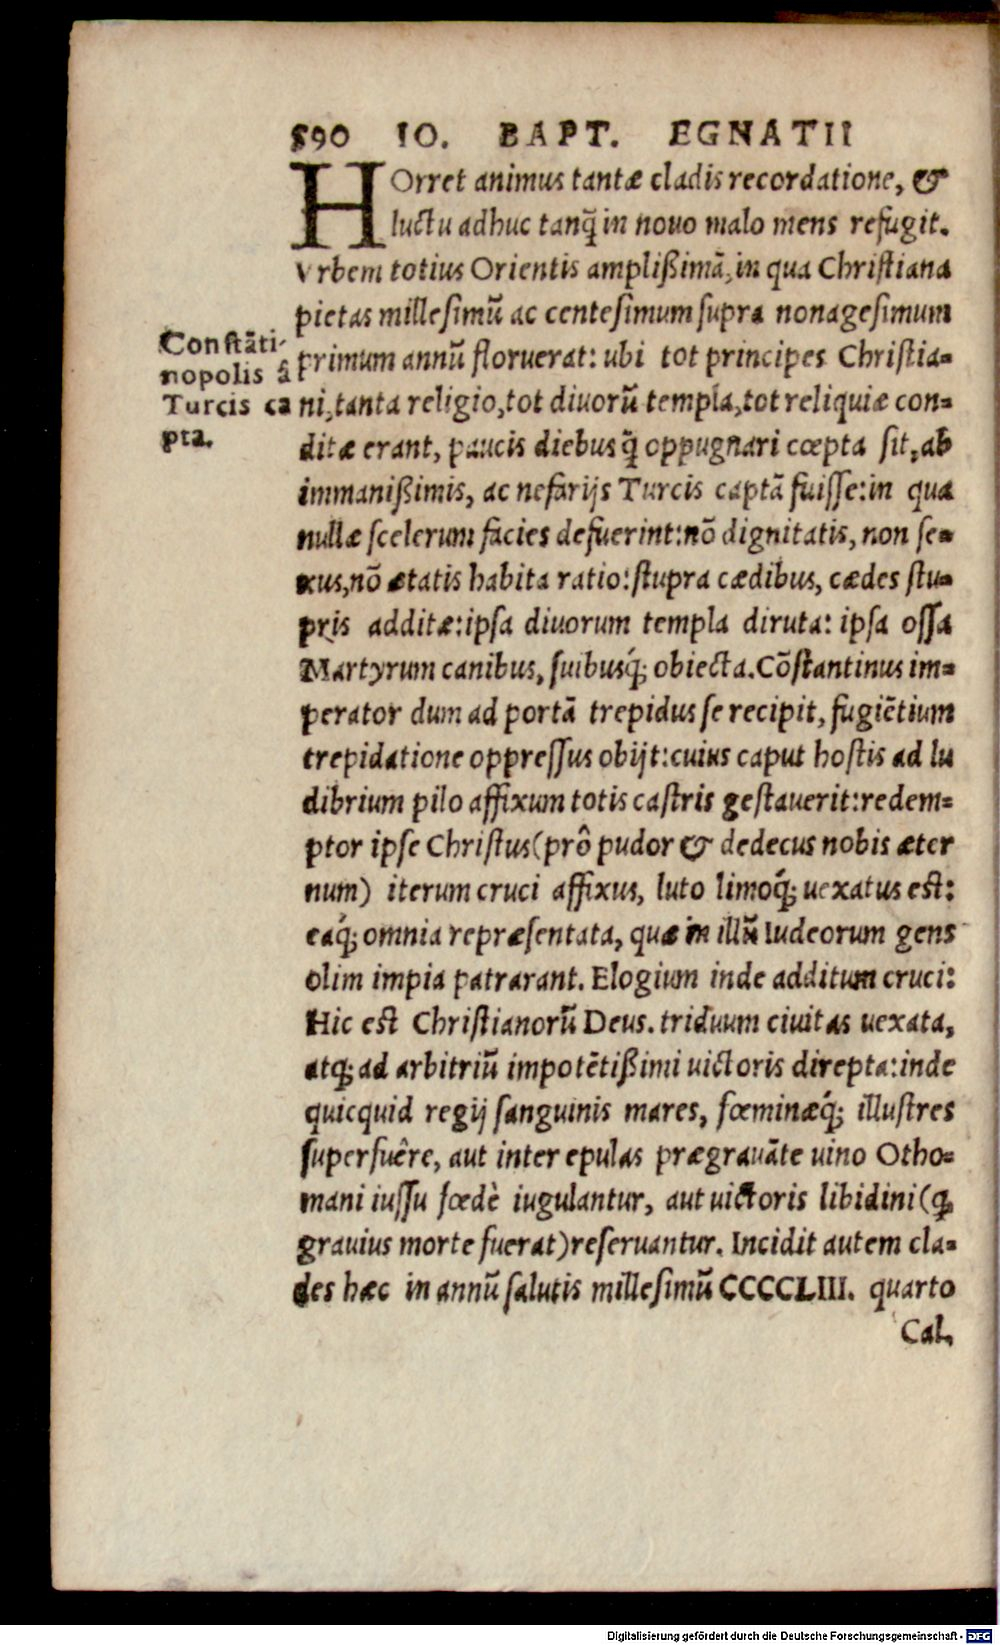 590 IO. BAPT. EGNATII
HOrret animus tantæ cladis recordatione, &
luctu adhuc tanq̃ in nouo malo mens refugit.
Vrbem totius Orientis amplißimã, in qua Christiana
pietas millesimũ ac centesimum supra nonagesimum
primum annũ floruerat: ubi tot principes Christia=
ni, tanta religio, tot diuorũ templa, tot reliquiæ con=
ditæ erant, paucis diebus q̃ oppugnari cœpta sit, ab
immanißimis, ac nefarijs Turcis captã fuisse: in qua
nullæ scelerum facies defuerint: nõ dignitatis, non se=
xus, nõ ætatis habita ratio: stupra cædibus, cædes stu=
pris additæ: ipsa diuorum templa diruta: ipsa ossa
Martyrum canibus, suibusq́; obiecta. Cõstantinus im=
perator dum ad portã trepidus se recipit, fugiẽtium
trepidatione oppressus obijt: cuius caput hostis ad lu
dibrium pilo affixum totis castris gestauerit: redem=
ptor ipse Christus (prô pudor & dedecus nobis æter
num) iterum cruci affixus, luto limoq́; uexatus est:
eaq́; omnia repræsentata, quæ in illũ Iudeorum gens
olim impia patrarant. Elogium inde additum cruci:
Hic est Christianorũ Deus. triduum ciuitas uexata,
atq; ad arbitriũ impotẽtißimi uictoris direpta: inde
quicquid regij sanguinis mares, fœminæq́; illustres
superfuêre, aut inter epulas prægrauãte uino Otho=
mani iussu fœdè iugulantur, aut uictoris libidini (q̃
grauius morte fuerat) reseruantur. Incidit autem cla=
des hæc in annũ salutis millesimũ CCCCLIII. quarto
Cal.
Constãti-
nopolis â
Turcis ca
pta.
Digitalisierung gefördert durch die Deutsche Forschungsgemeinschaft - DFG